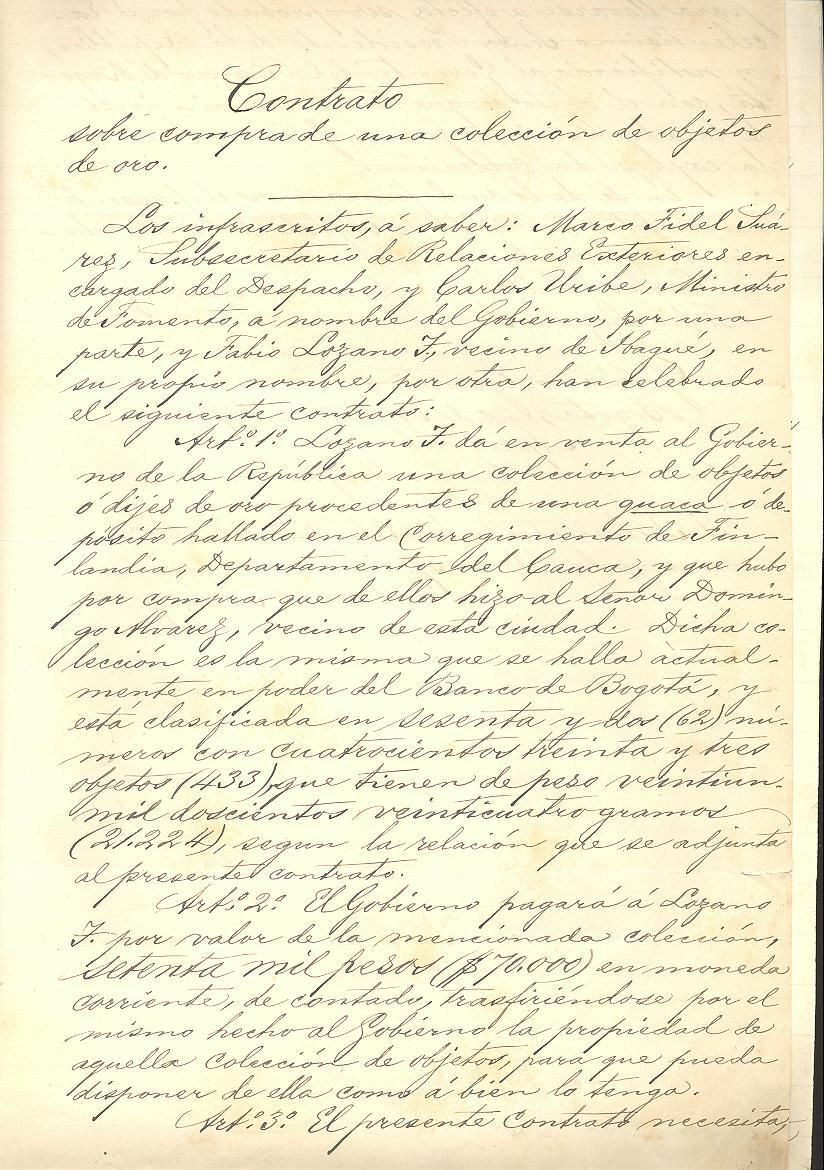 Contrato
sobre compra de una colección de objetos
de oro.
Los infrascritos, á saber: Marco Fidel Suá-
rez, Subsecretario de Relaciones Exteriores en-
cargado del Despacho, y Carlos Uribe, Ministro
de Fomento, á nombre del Gobierno, por una
parte, y Fabio Lozano T., vecino de Ibagué, en
su propio nombre, por otra, han celebrado
el siguiente contrato:
Art.º 1.º Lozano T. dá en venta al Gobier-
no de la República una colección de objetos
ó dijes de oro procedentes de una guaca ó de-
pósito hallado en el Corregimiento de Fin-
landia, Departamento del Cauca, y que hubo
por compra que de ellos hizo al Señor Domin-
go Alvarez, vecino de esta ciudad. Dicha co-
lección es la misma que se halla actual-
mente en poder del Banco de Bogotá, y
está clasificada en sesenta y dos (62) nú-
meros con cuatrocientos treinta y tres
objetos (433), que tienen de peso veintiun-
mil doscientos veinticuatro gramos
(21.224), segun la relación que se adjunta
al presente contrato.
Art.º 2.º El Gobierno pagará á Lozano
T. por valor de la mencionada colección,
setenta mil pesos ($70.000) en moneda
corriente, de contado, trasfiriéndose por el
mismo hecho al Gobierno la propiedad de
aquella colección de objetos, para que pueda
disponer de ella como á bien lo tenga.
Art.º 3.º El presente contrato necesita,